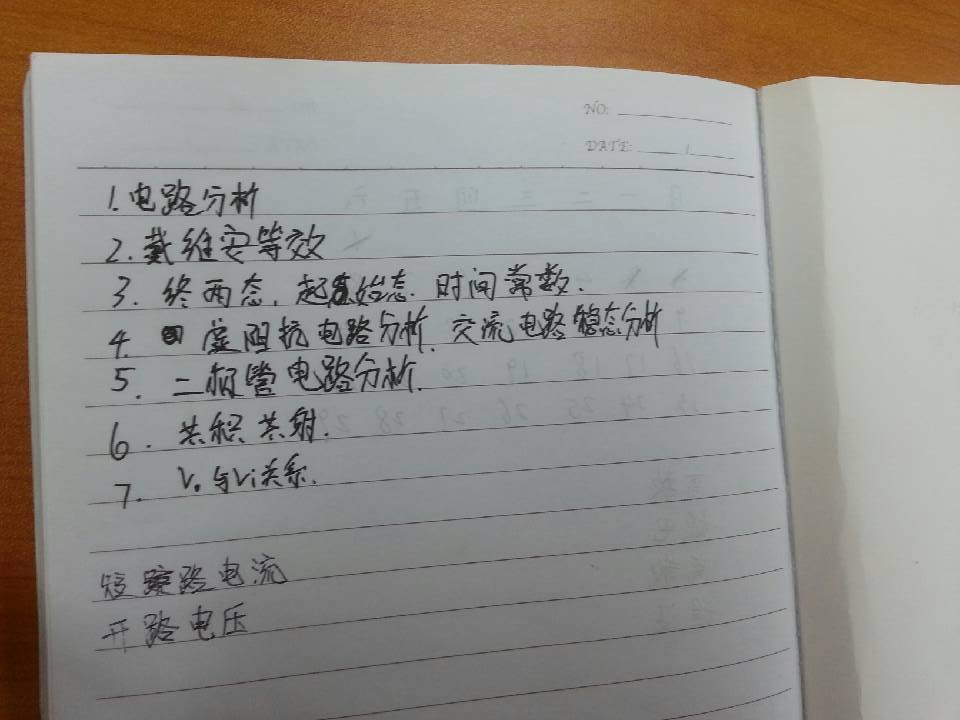 NO:
DATE:
1. 电路分析
2. 戴维安等效
3. 终两态. 起始态. 时间常数.
4. 虚阻抗电路分析. 交流电路稳态分析
5. 二极管电路分析.
6. 共积共射.
7. Vo与Vi关系.
短路电流
开路电压